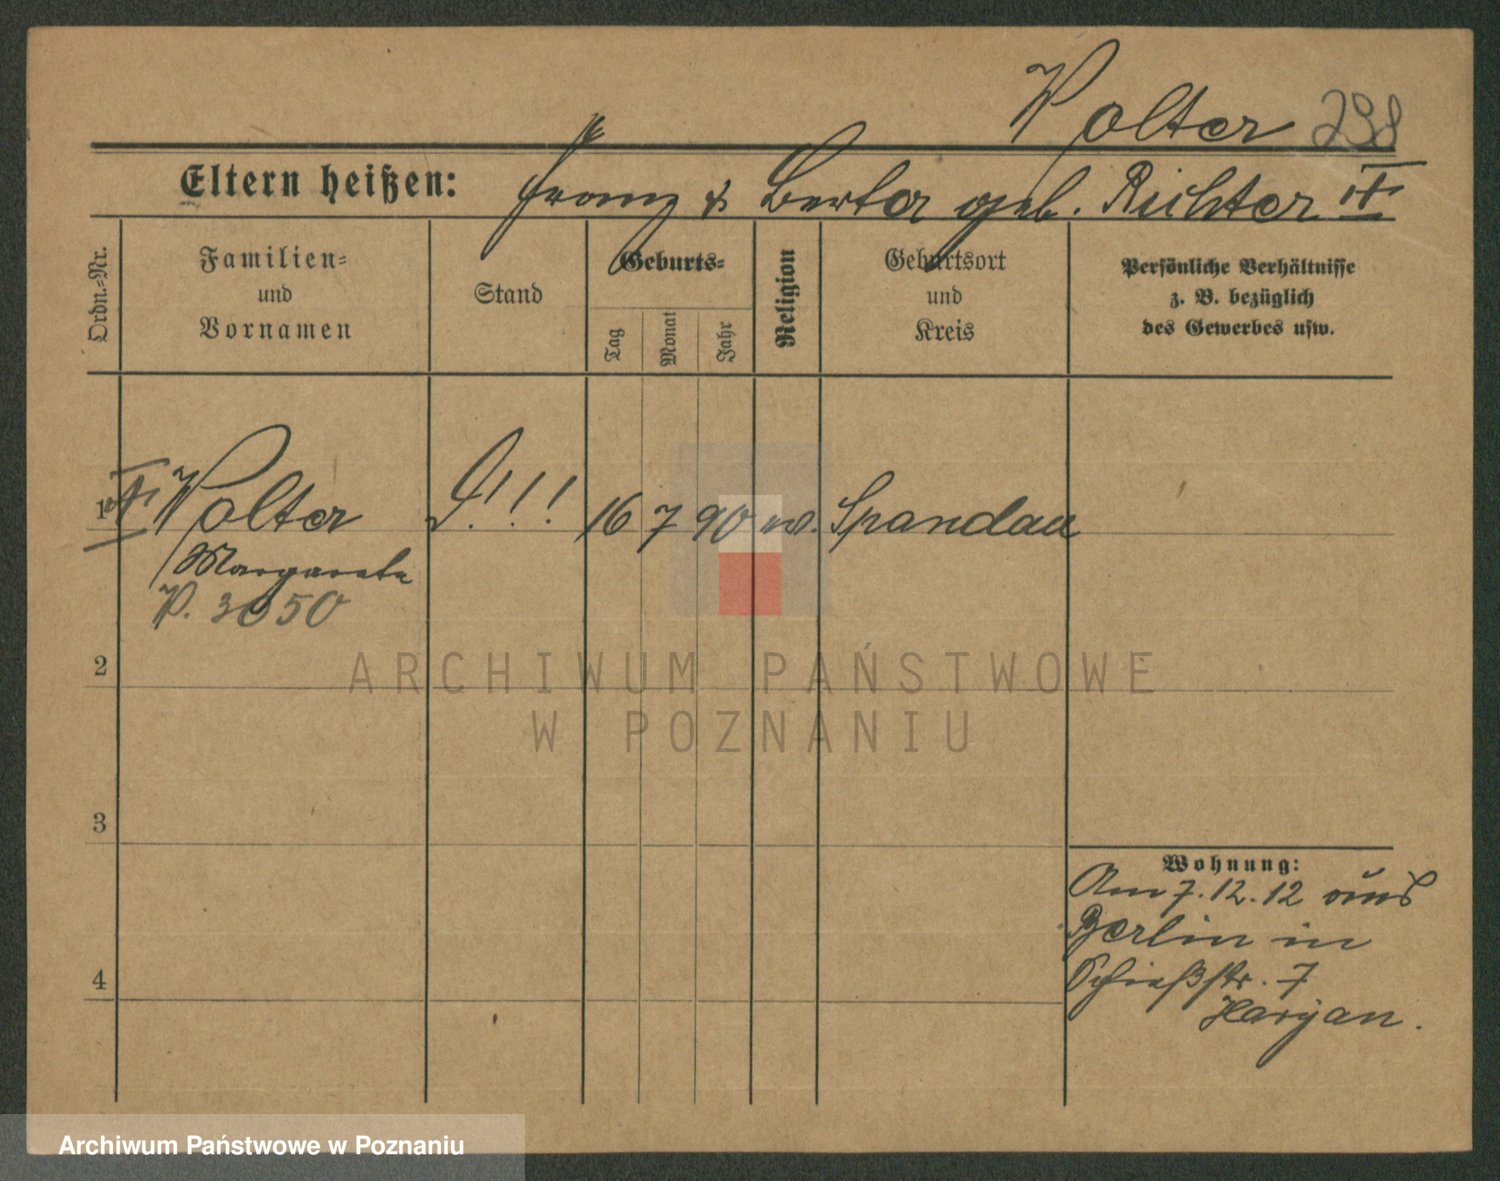 Wolter 298
Eltern heißen: Franz & Berta geb. Richter
Ordn.-Nr.
Familien- und Vornamen
Stand
Geburts-
Tag
Monat
Jahr
Religion
Geburtsort und Kreis
Persönliche Verhältnisse
z. B. bezüglich
des Gewerbes usw.
1 Wolter !!! 16 7 90 Spandau
Margarete
P. 3050
2
3
4
Wohnung:
Am 7.12.12 aus
Berlin in
Schießstr. 7
Harjan.
ARCHIWUM PAŃSTWOWE
W POZNANIU
Archiwum Państwowe w Poznaniu